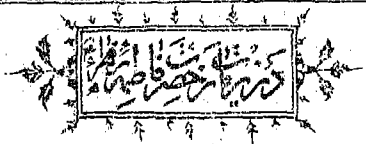 در زیارت حضرت فاطمه زهرا